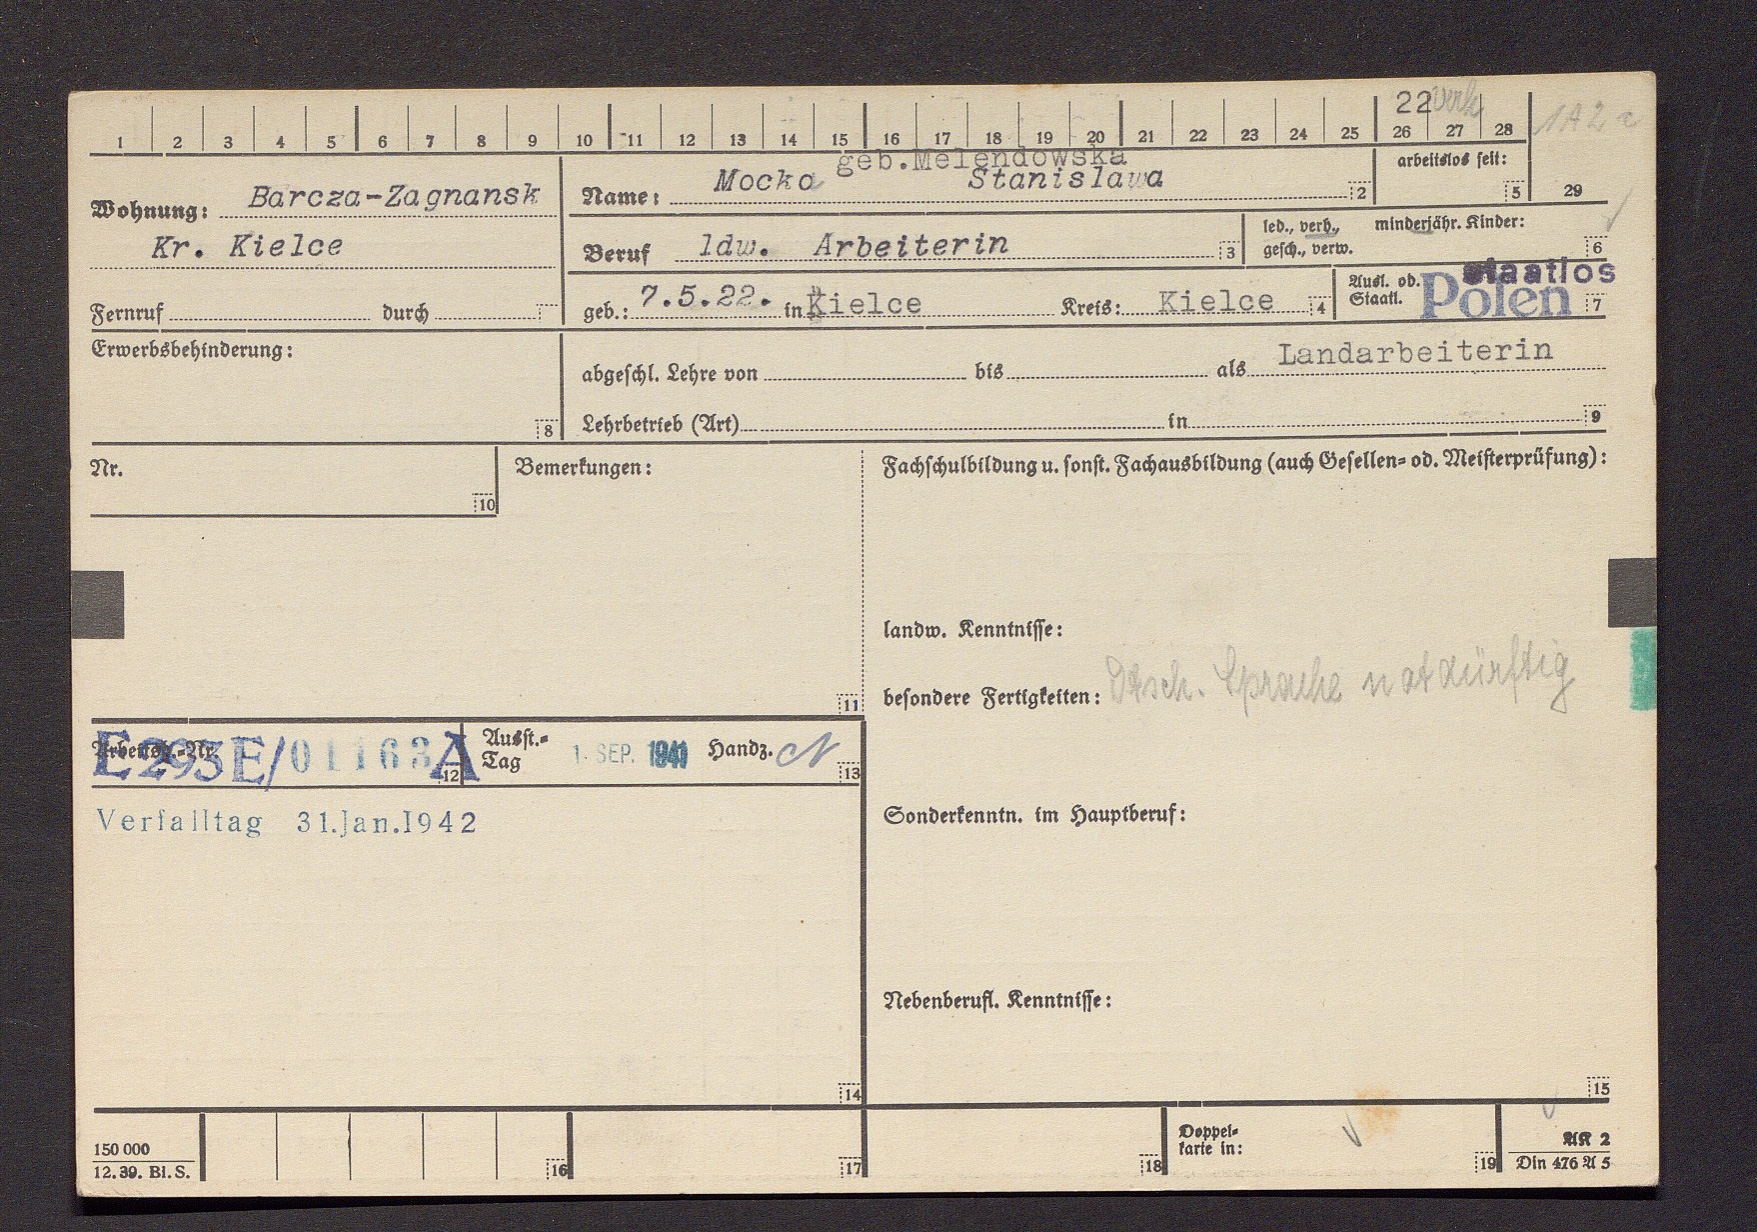 22 verh
1 2 3 4 5 6 7 8 9 10 11 12 13 14 15 16 17 18 19 20 21 22 23 24 25 26 27 28
1A2a
Wohnung: Barcza-Zagnansk
Kr. Kielce
geb.Melendowska
Name: Mocko Stanislawa 2
arbeitslos seit:
5
29
Beruf ldw. Arbeiterin 3
led., verh., minderjähr. Kinder:
gesch., verw. 6
Fernruf durch
geb.: 7.5.22. in Kielce Kreis: Kielce 4
Ausl. od. staatlos
Staatl. Polen 7
Erwerbsbehinderung:
8
abgeschl. Lehre von bis als Landarbeiterin
Lehrbetrieb (Art) in 9
Nr.
10
Bemerkungen:
11
Fachschulbildung u. sonst. Fachausbildung (auch Gesellen= od. Meisterprüfung):
landw. Kenntnisse:
besondere Fertigkeiten: Dtsch. Sprache notdürftig
Arbeitsb.-Nr.
E293E/01163A
12
Ausst.=
Tag 1. SEP. 1941 Handz.
13
Verfalltag 31.Jan.1942
14
Sonderkenntn. im Hauptberuf:
Nebenberufl. Kenntnisse:
15
150 000
12. 39. Bl. S.
16
17
18
Doppel=
karte in:
19
AK 2
Din 476 A 5